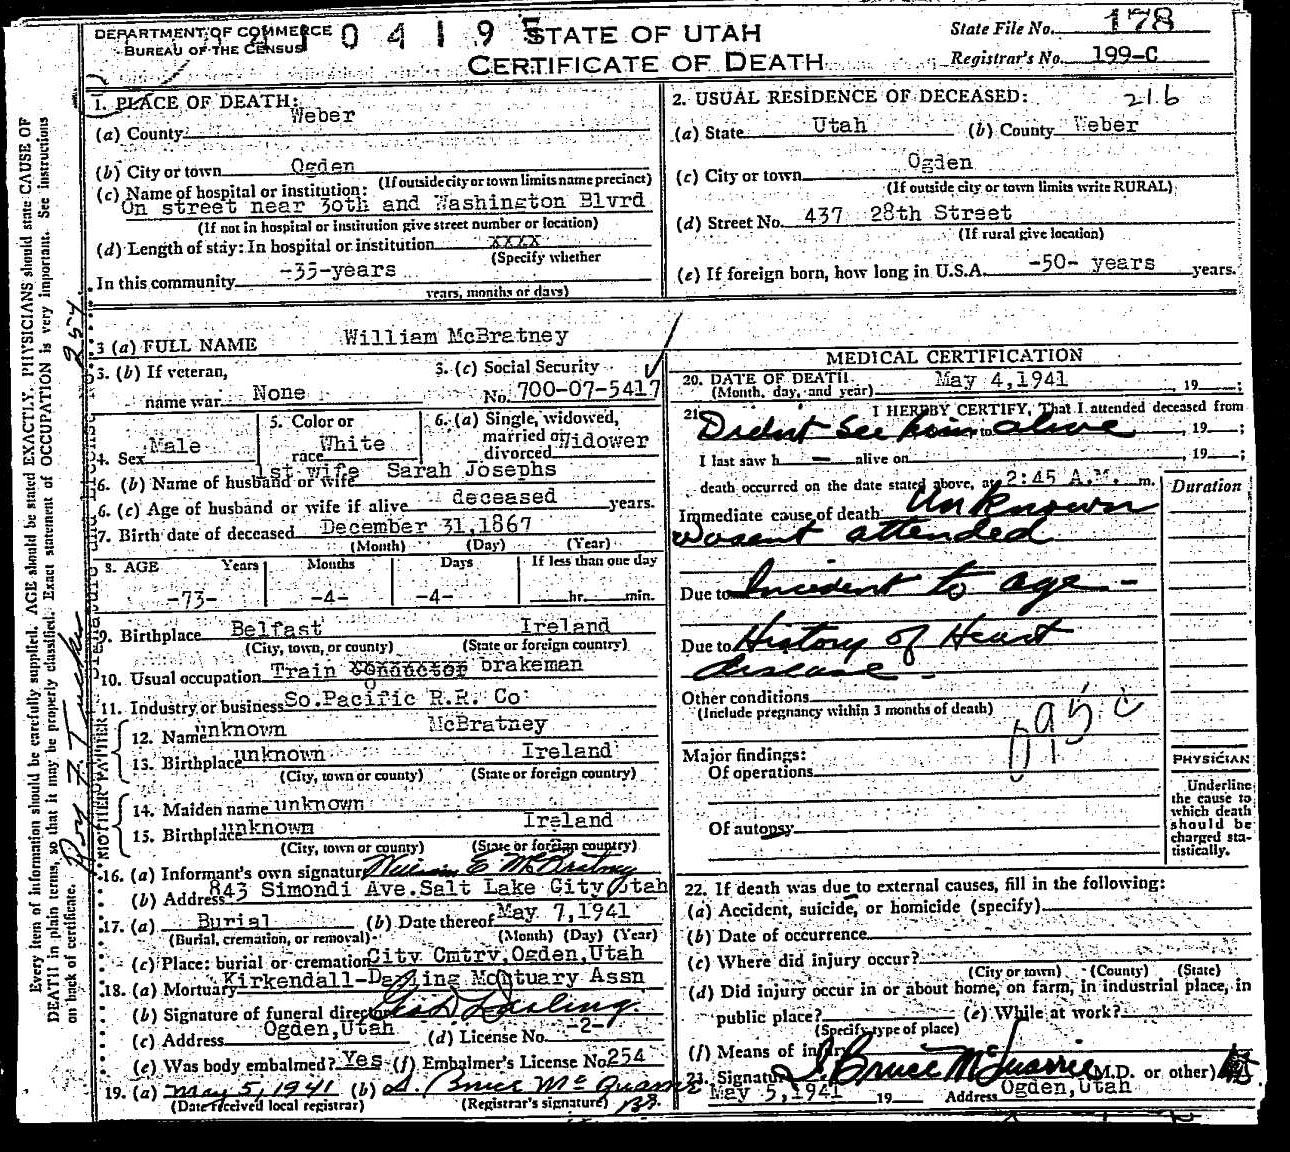 DEPARTMENT OF COMMERCE
BUREAU OF THE CENSUS
10419
STATE OF UTAH
CERTIFICATE OF DEATH
State File No. 178
Registrar's No. 199-C
1. PLACE OF DEATH:
(a) County Weber
(b) City or town Ogden
(If outside city or town limits name precinct)
(c) Name of hospital or institution:
On street near 30th and Washington Blvrd
(If not in hospital or institution give street number or location)
(d) Length of stay: In hospital or institution xxxx
(Specify whether
In this community -35-years
years, months or days)
2. USUAL RESIDENCE OF DECEASED: 216
(a) State Utah (b) County Weber
(c) City or town Ogden
(If outside city or town limits write RURAL)
(d) Street No. 437 28th Street
(If rural give location)
(e) If foreign born, how long in U.S.A. -50- years years.
3 (a) FULL NAME William McBratney
3. (b) If veteran,
name war None
3. (c) Social Security
No. 700-07-5417
4. Sex Male
5. Color or
race White
6. (a) Single, widowed,
married or
divorced Widower
6. (b) Name of husband or wife 1st wife Sarah Josephs
6. (c) Age of husband or wife if alive deceased years.
7. Birth date of deceased December 31,1867
(Month) (Day) (Year)
8. AGE Years Months Days If less than one day
-73- -4- -4- hr. min.
9. Birthplace Belfast Ireland
(City, town, or county) (State or foreign country)
10. Usual occupation Train conductor brakeman
11. Industry or business So.Pacific R.R. Co
FATHER
12. Name unknown McBratney
13. Birthplace unknown Ireland
(City, town or county) (State or foreign country)
MOTHER
14. Maiden name unknown
15. Birthplace unknown Ireland
(City, town or county) (State or foreign country)
16. (a) Informant's own signature William E McBratney
(b) Address 843 Simondi Ave.Salt Lake City Utah
17. (a) Burial (b) Date thereof May 7,1941
(Burial, cremation, or removal) (Month) (Day) (Year)
(c) Place: burial or cremation City Cmtry,Ogden,Utah
18. (a) Mortuary Kirkendall-Darling Mortuary Assn
(b) Signature of funeral director Geo D Darling
(c) Address Ogden,Utah (d) License No. -2-
(e) Was body embalmed? Yes (f) Embalmer's License No. 254
19. (a) May 5, 1941 (b) J. Bruce McQuarrie
(Date received local registrar) (Registrar's signature)
MEDICAL CERTIFICATION
20. DATE OF DEATH
(Month, day, and year) May 4,1941 , 19 ;
21. I HEREBY CERTIFY, That I attended deceased from
Didnt see him to alive , 19 ;
I last saw h — alive on , 19 ;
death occurred on the date stated above, at 2:45 A.M. m.
Duration
Immediate cause of death Unknown
Wasent attended
Due to Incident to age -
Due to History of Heart
disease -
Other conditions
(Include pregnancy within 3 months of death)
Major findings:
Of operations
Of autopsy
PHYSICIAN
Underline
the cause to
which death
should be
charged sta-
tistically.
22. If death was due to external causes, fill in the following:
(a) Accident, suicide, or homicide (specify)
(b) Date of occurrence
(c) Where did injury occur?
(City or town) (County) (State)
(d) Did injury occur in or about home, on farm, in industrial place, in
public place? (e) While at work?
(Specify type of place)
(f) Means of injury
23. Signature J. Bruce McQuarrie (M.D. or other)
May 5,1941 19 Address Ogden,Utah
Every item of information should be carefully supplied. AGE should be stated EXACTLY. PHYSICIANS should state CAUSE OF
DEATH in plain terms, so that it may be properly classified. Exact statement of OCCUPATION is very important. See instructions
on back of certificate.
Roy F. Tucker 254